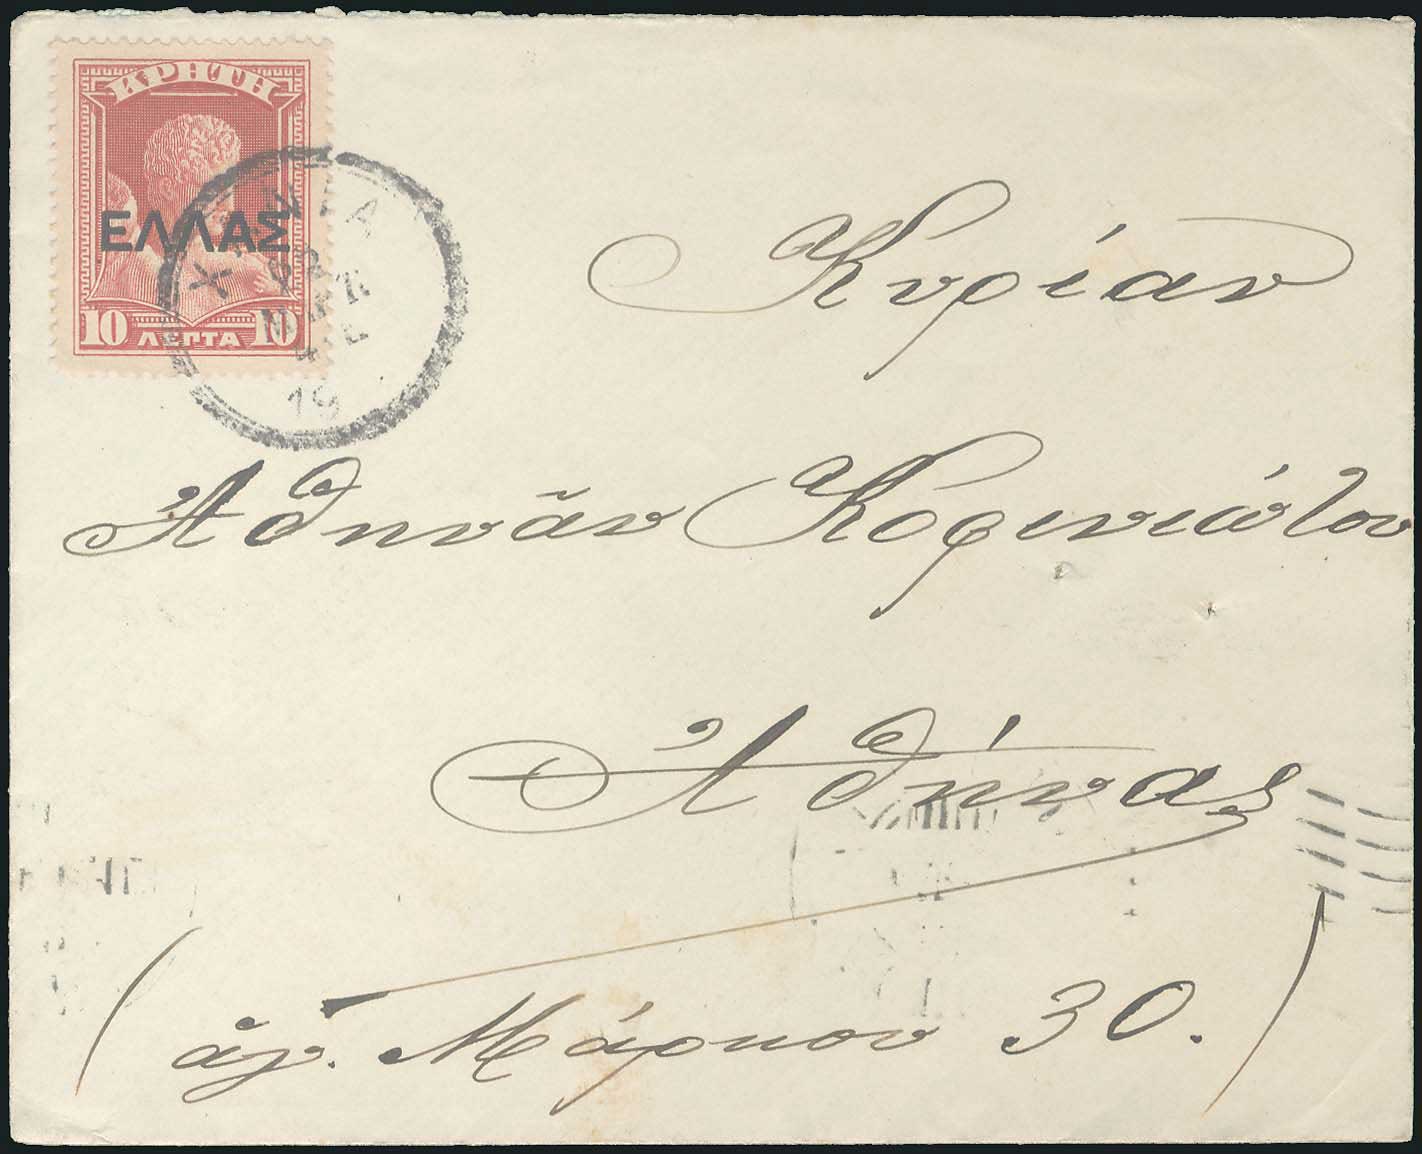 ΚΡΗΤΗ
ΕΛΛΑΣ
10 ΛΕΠΤΑ 10
ΧΑΝΙΑ
19
Κυρίαν
Ἀθηνᾶν Κοφινιώτου
Ἀθήνας
(ἁγ. Μάρκου 30.)